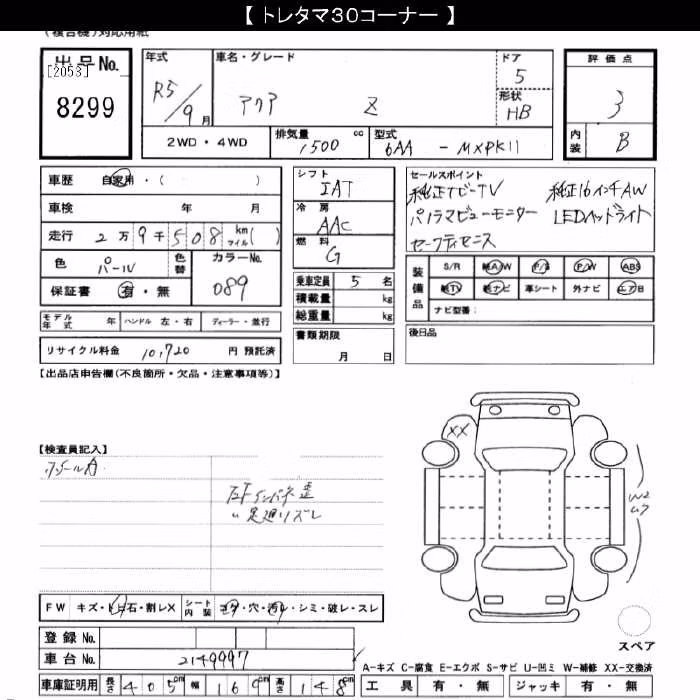 【 トレタマ30コーナー 】
(複合機)対応用紙
出品No.
[2053]
8299
年式 車名・グレード ドア 評価点
R5/9月 アクア Z 5 3
形状 HB
2WD・4WD 排気量 1500 cc 型式 6AA - MXPK11 内装 B
車歴 自家用・( )
車検 年 月
走行 2万9千508 km マイル( )
色 パール 色替 カラーNo. 089
保証書 有・無
モデル年式 年 ハンドル 左・右 ディーラー・並行
リサイクル料金 10,720 円 預託済
シフト IAT
冷房 AAC
燃料 G
乗車定員 5 名
積載量 kg
総重量 kg
書類期限
月 日
セールスポイント
純正ナビ-TV 純正16インチAW
パノラマビューモニター LEDヘッドライト
セーフティセンス
装備品 S/R 純A/W P/S P/W ABS
純TV 純ナビ 革シート 外ナビ エアB
ナビ型番:
後日品
【出品店申告欄(不良箇所・欠品・注意事項等)】
【検査員記入】
XX
W2
FW キズ・トビ石・割レX シート内装 コゲ・穴・汚レ・シミ・破レ・スレ
登録 No.
車台 No. 2149997
車庫証明用 長さ 405cm 幅 169cm 高さ 148cm
スペア
A-キズ C-腐食 E-エクボ S-サビ U-凹ミ W-補修 XX-交換済
工具 有・無 ジャッキ 有・無